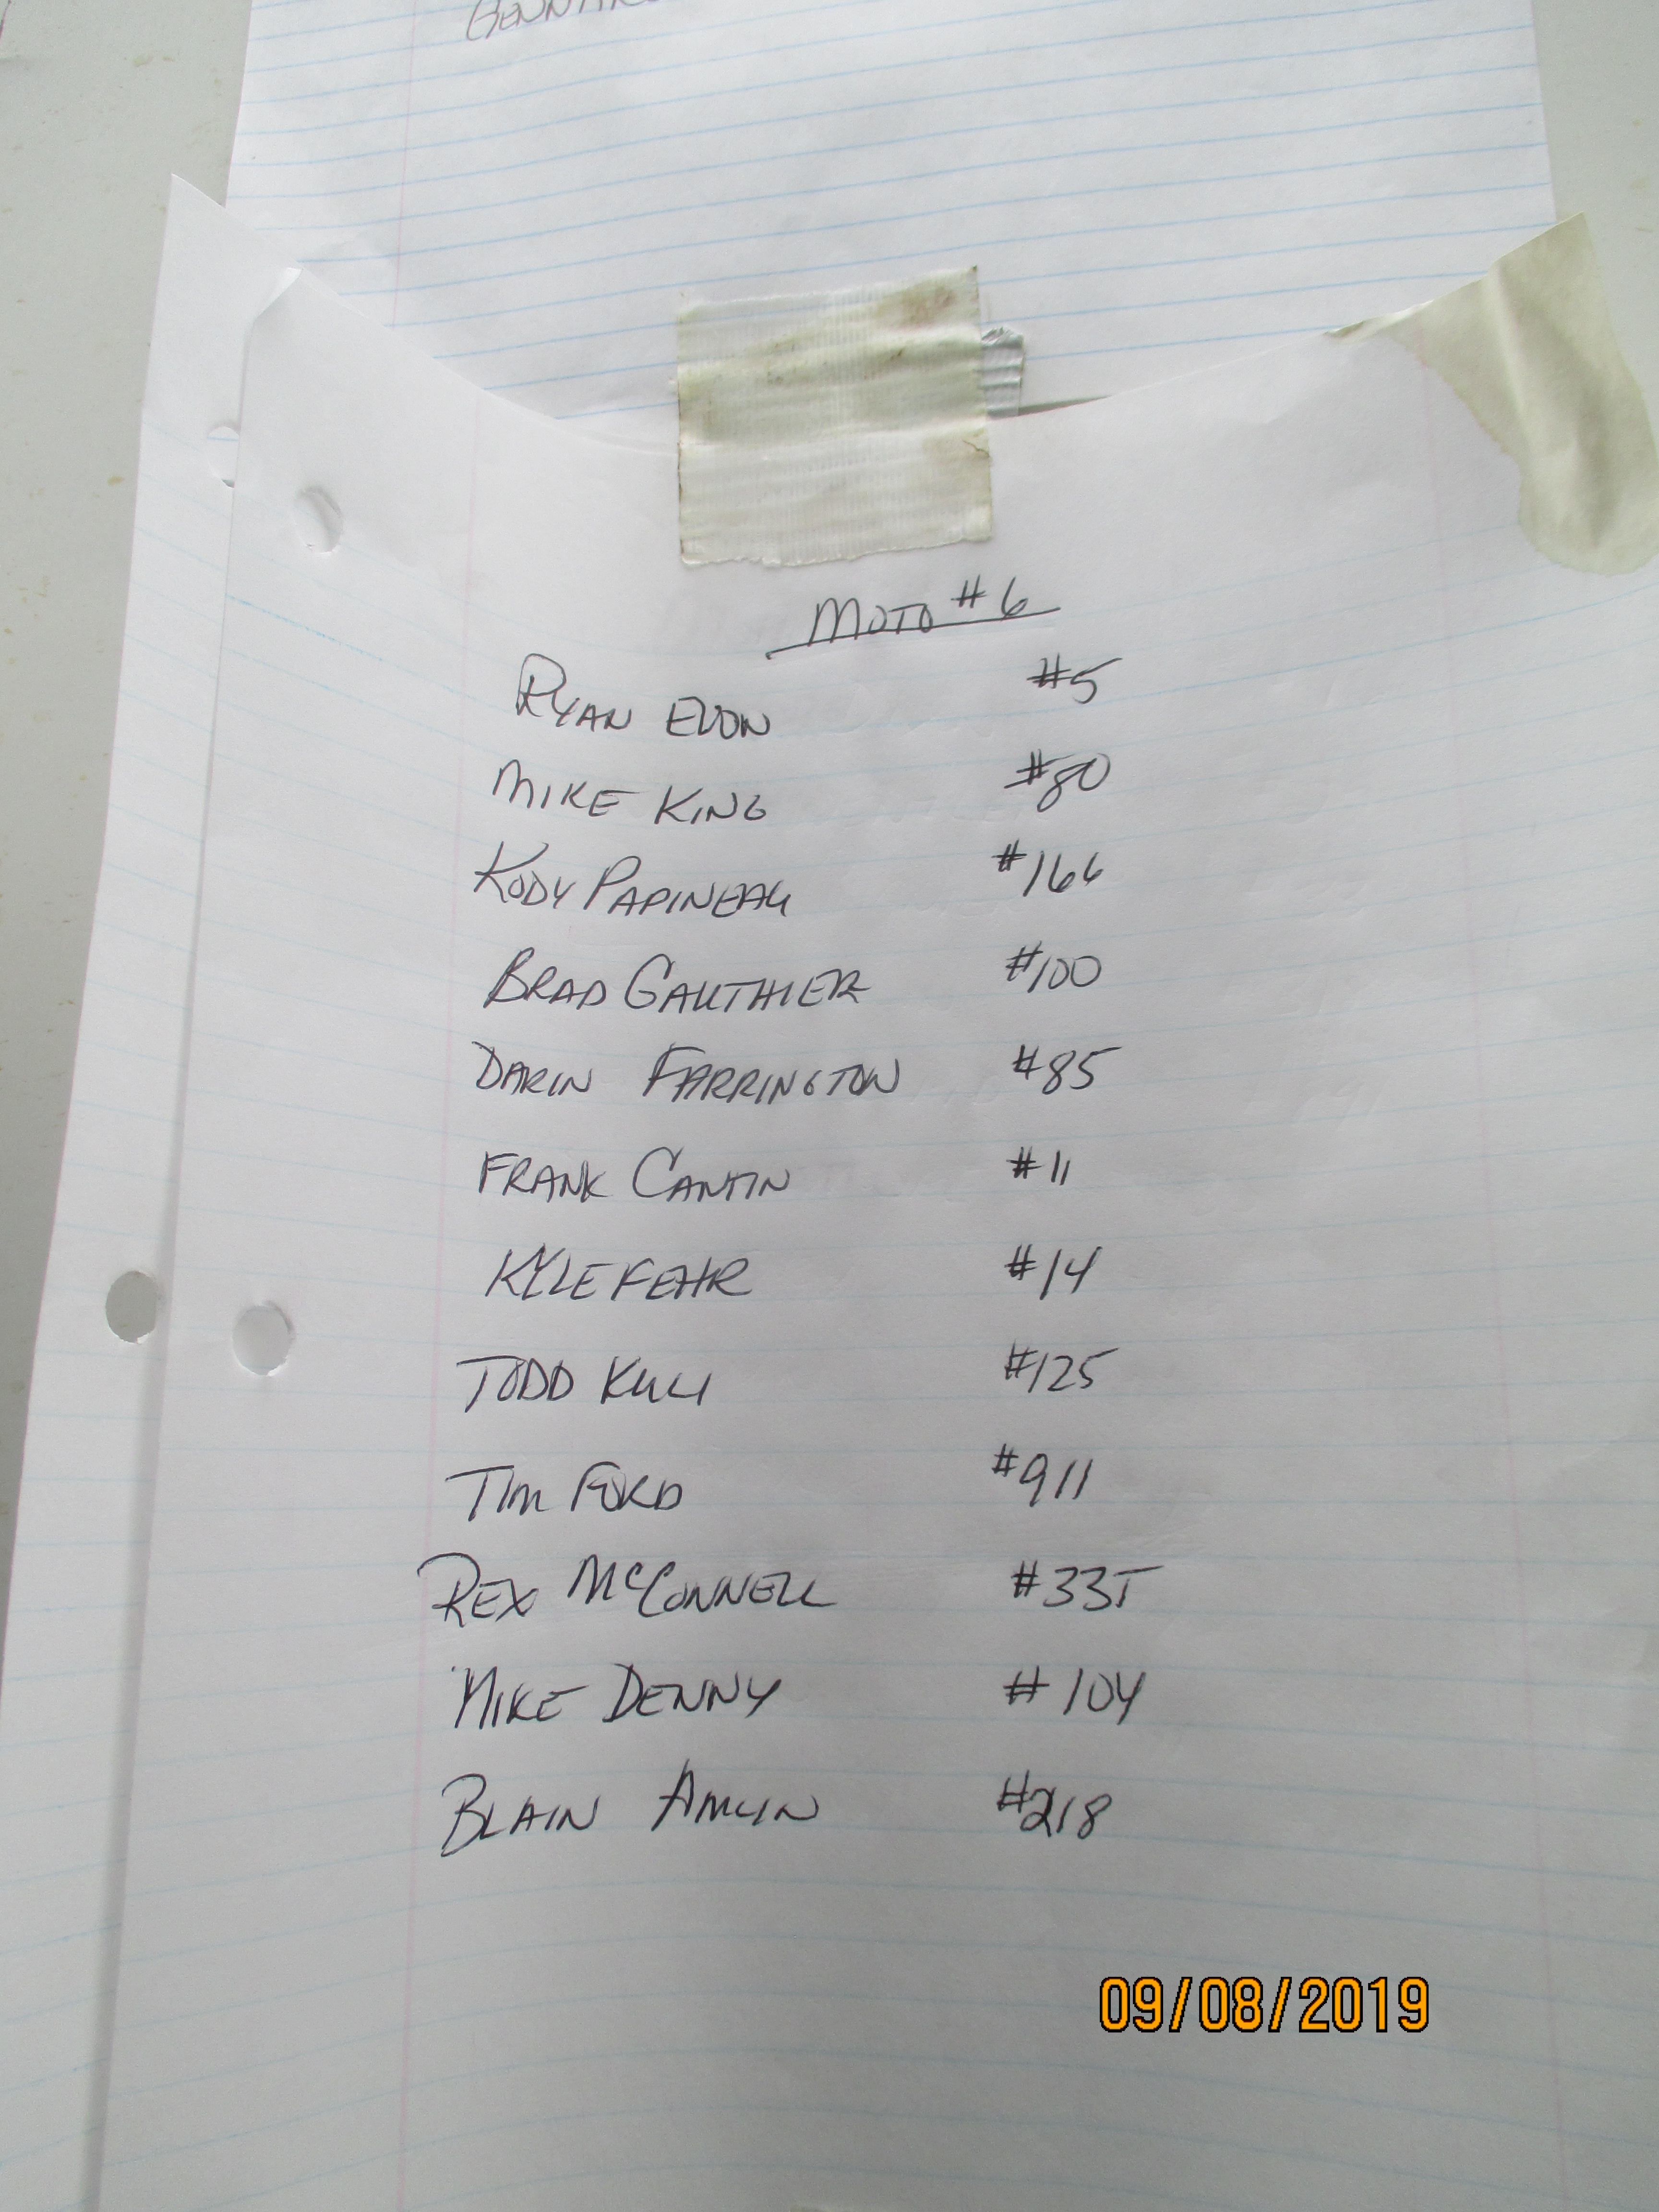 MOTO #6
RYAN EVON #5
MIKE KING #80
KODY PAPINEAU #166
BRAD GAUTHIER #100
DARIN FARRINGTON #85
FRANK CANTIN #11
KYLE FEHR #14
TODD KULI #125
TIM FORD #911
REX McCONNELL #335
MIKE DENNY #104
BLAIN AMLIN #218
09/08/2019